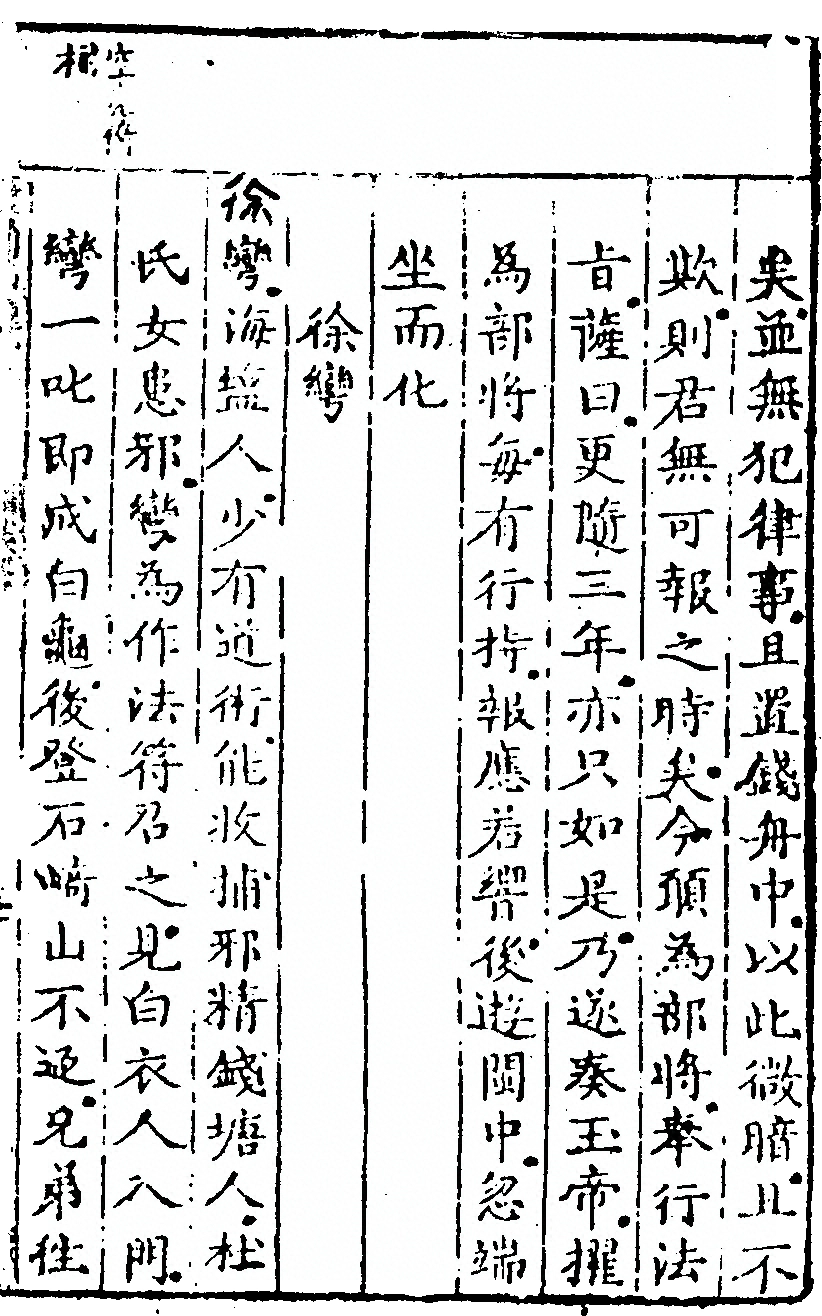 矣並無犯律事且置錢舟中以此微暗且不
欺則君無可報之時矣今願為部將奉行法
旨薩曰更隨三年亦只如是乃遂奏玉帝擢
為部將每有行持報應若響後遊閩中忽端
坐而化
徐彎
徐彎海塩人少有道術能收捕邪精錢塘人杜
氏女患邪彎為作法符召之見白衣人入門
彎一叱即成白龜後登石崎山不返兄弟徃